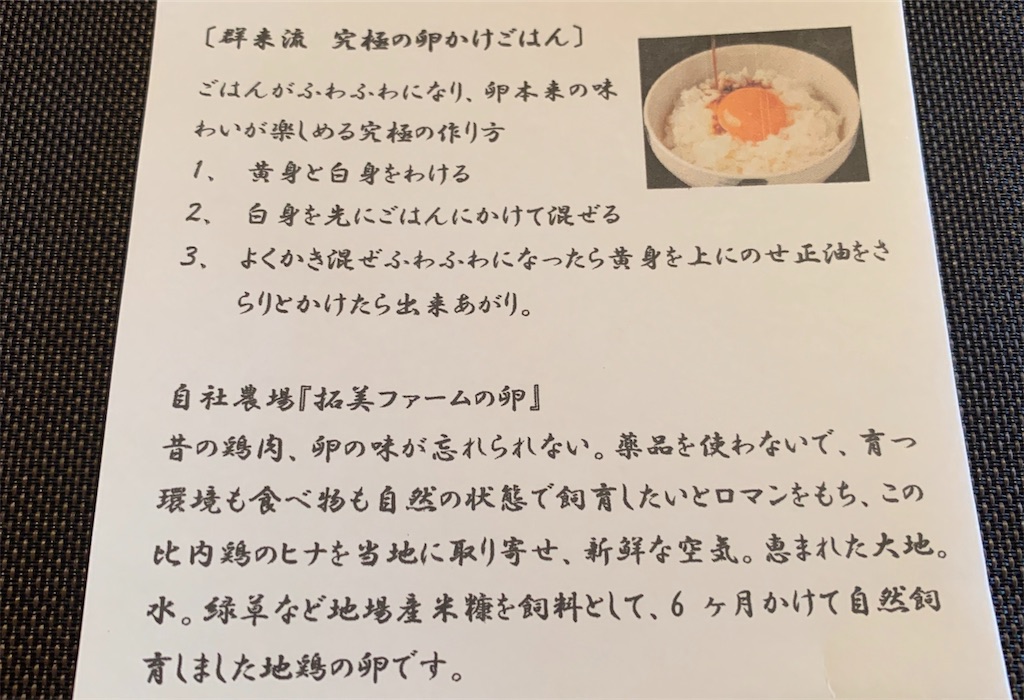 〔群来流 究極の卵かけごはん〕
ごはんがふわふわになり、卵本来の味
わいが楽しめる究極の作り方
1、 黄身と白身をわける
2、 白身を先にごはんにかけて混ぜる
3、 よくかき混ぜふわふわになったら黄身を上にのせ正油をさ
らりとかけたら出来あがり。
自社農場『拓美ファームの卵』
昔の鶏肉、卵の味が忘れられない。薬品を使わないで、育つ
環境も食べ物も自然の状態で飼育したいとロマンをもち、この
比内鶏のヒナを当地に取り寄せ、新鮮な空気。恵まれた大地。
水。緑草など地場産米糠を飼料として、6 ヶ月かけて自然飼
育しました地鶏の卵です。